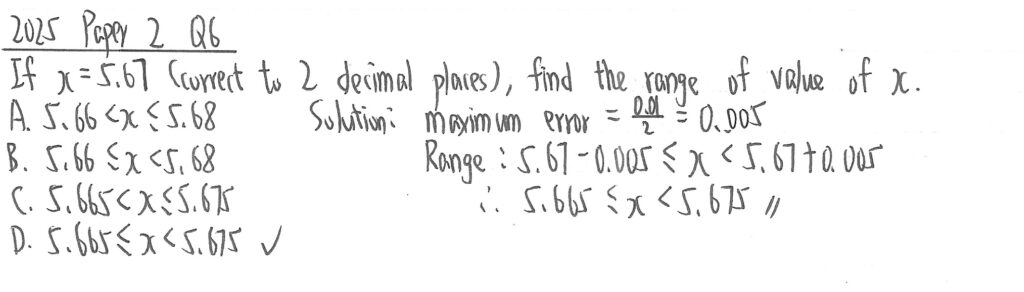 2025 Paper 2 Q6
If x = 5.67 (correct to 2 decimal places), find the range of value of x.
A. 5.66 < x ≤ 5.68
B. 5.66 ≤ x < 5.68
C. 5.665 < x ≤ 5.675
D. 5.665 ≤ x < 5.675 ✓
Solution: maximum error = 0.01/2 = 0.005
Range : 5.67 - 0.005 ≤ x < 5.67 + 0.005
∴ 5.665 ≤ x < 5.675 //